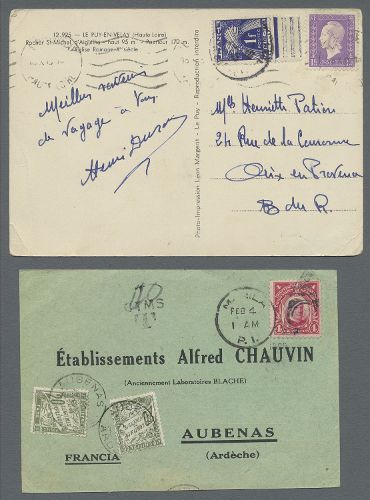 12.925 — LE PUY-EN-VELAY (Haute Loire)
Rocher St-Michel d'Aiguilhe - haut 95 m
L'Eglise Romane
siècle
Meilleurs souvenirs
de voyage à Puy
Henri Durand
Photo-Impression Léon Margerit - Le Puy - Reproduction interdite
Henriette Patin
24 Rue de la Couronne
Aix en Provence
B du R.
CTMS
T
MANILA
FEB 4
1 AM
P.I.
Établissements Alfred CHAUVIN
(Anciennement Laboratoires BLACHE)
AUBENAS
AUBENAS
(Ardèche)
FRANCIA